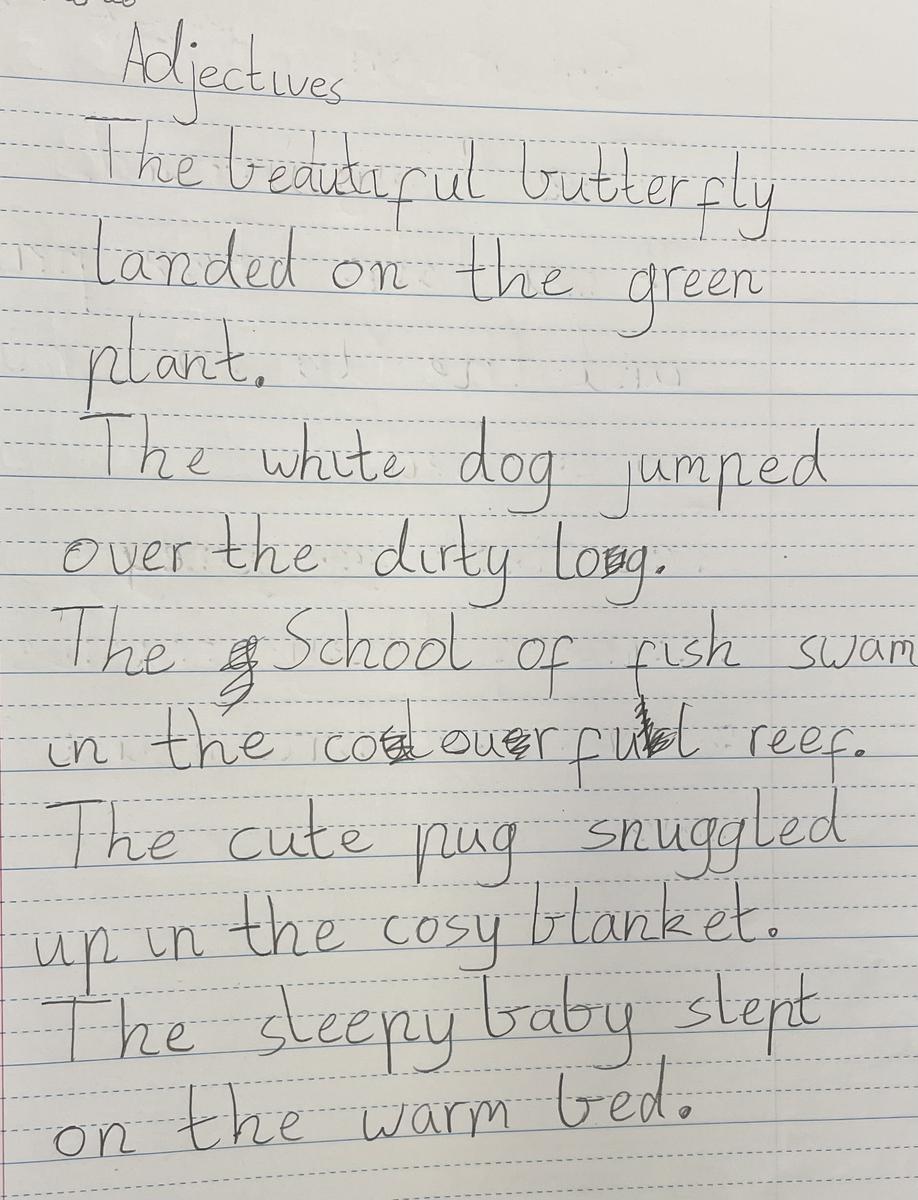 Adjectives
The beautiful butterfly
landed on the green
plant.
The white dog jumped
over the dirty log.
The School of fish swam
in the colourful reef.
The cute pug snuggled
up in the cosy blanket.
The sleepy baby slept
on the warm bed.